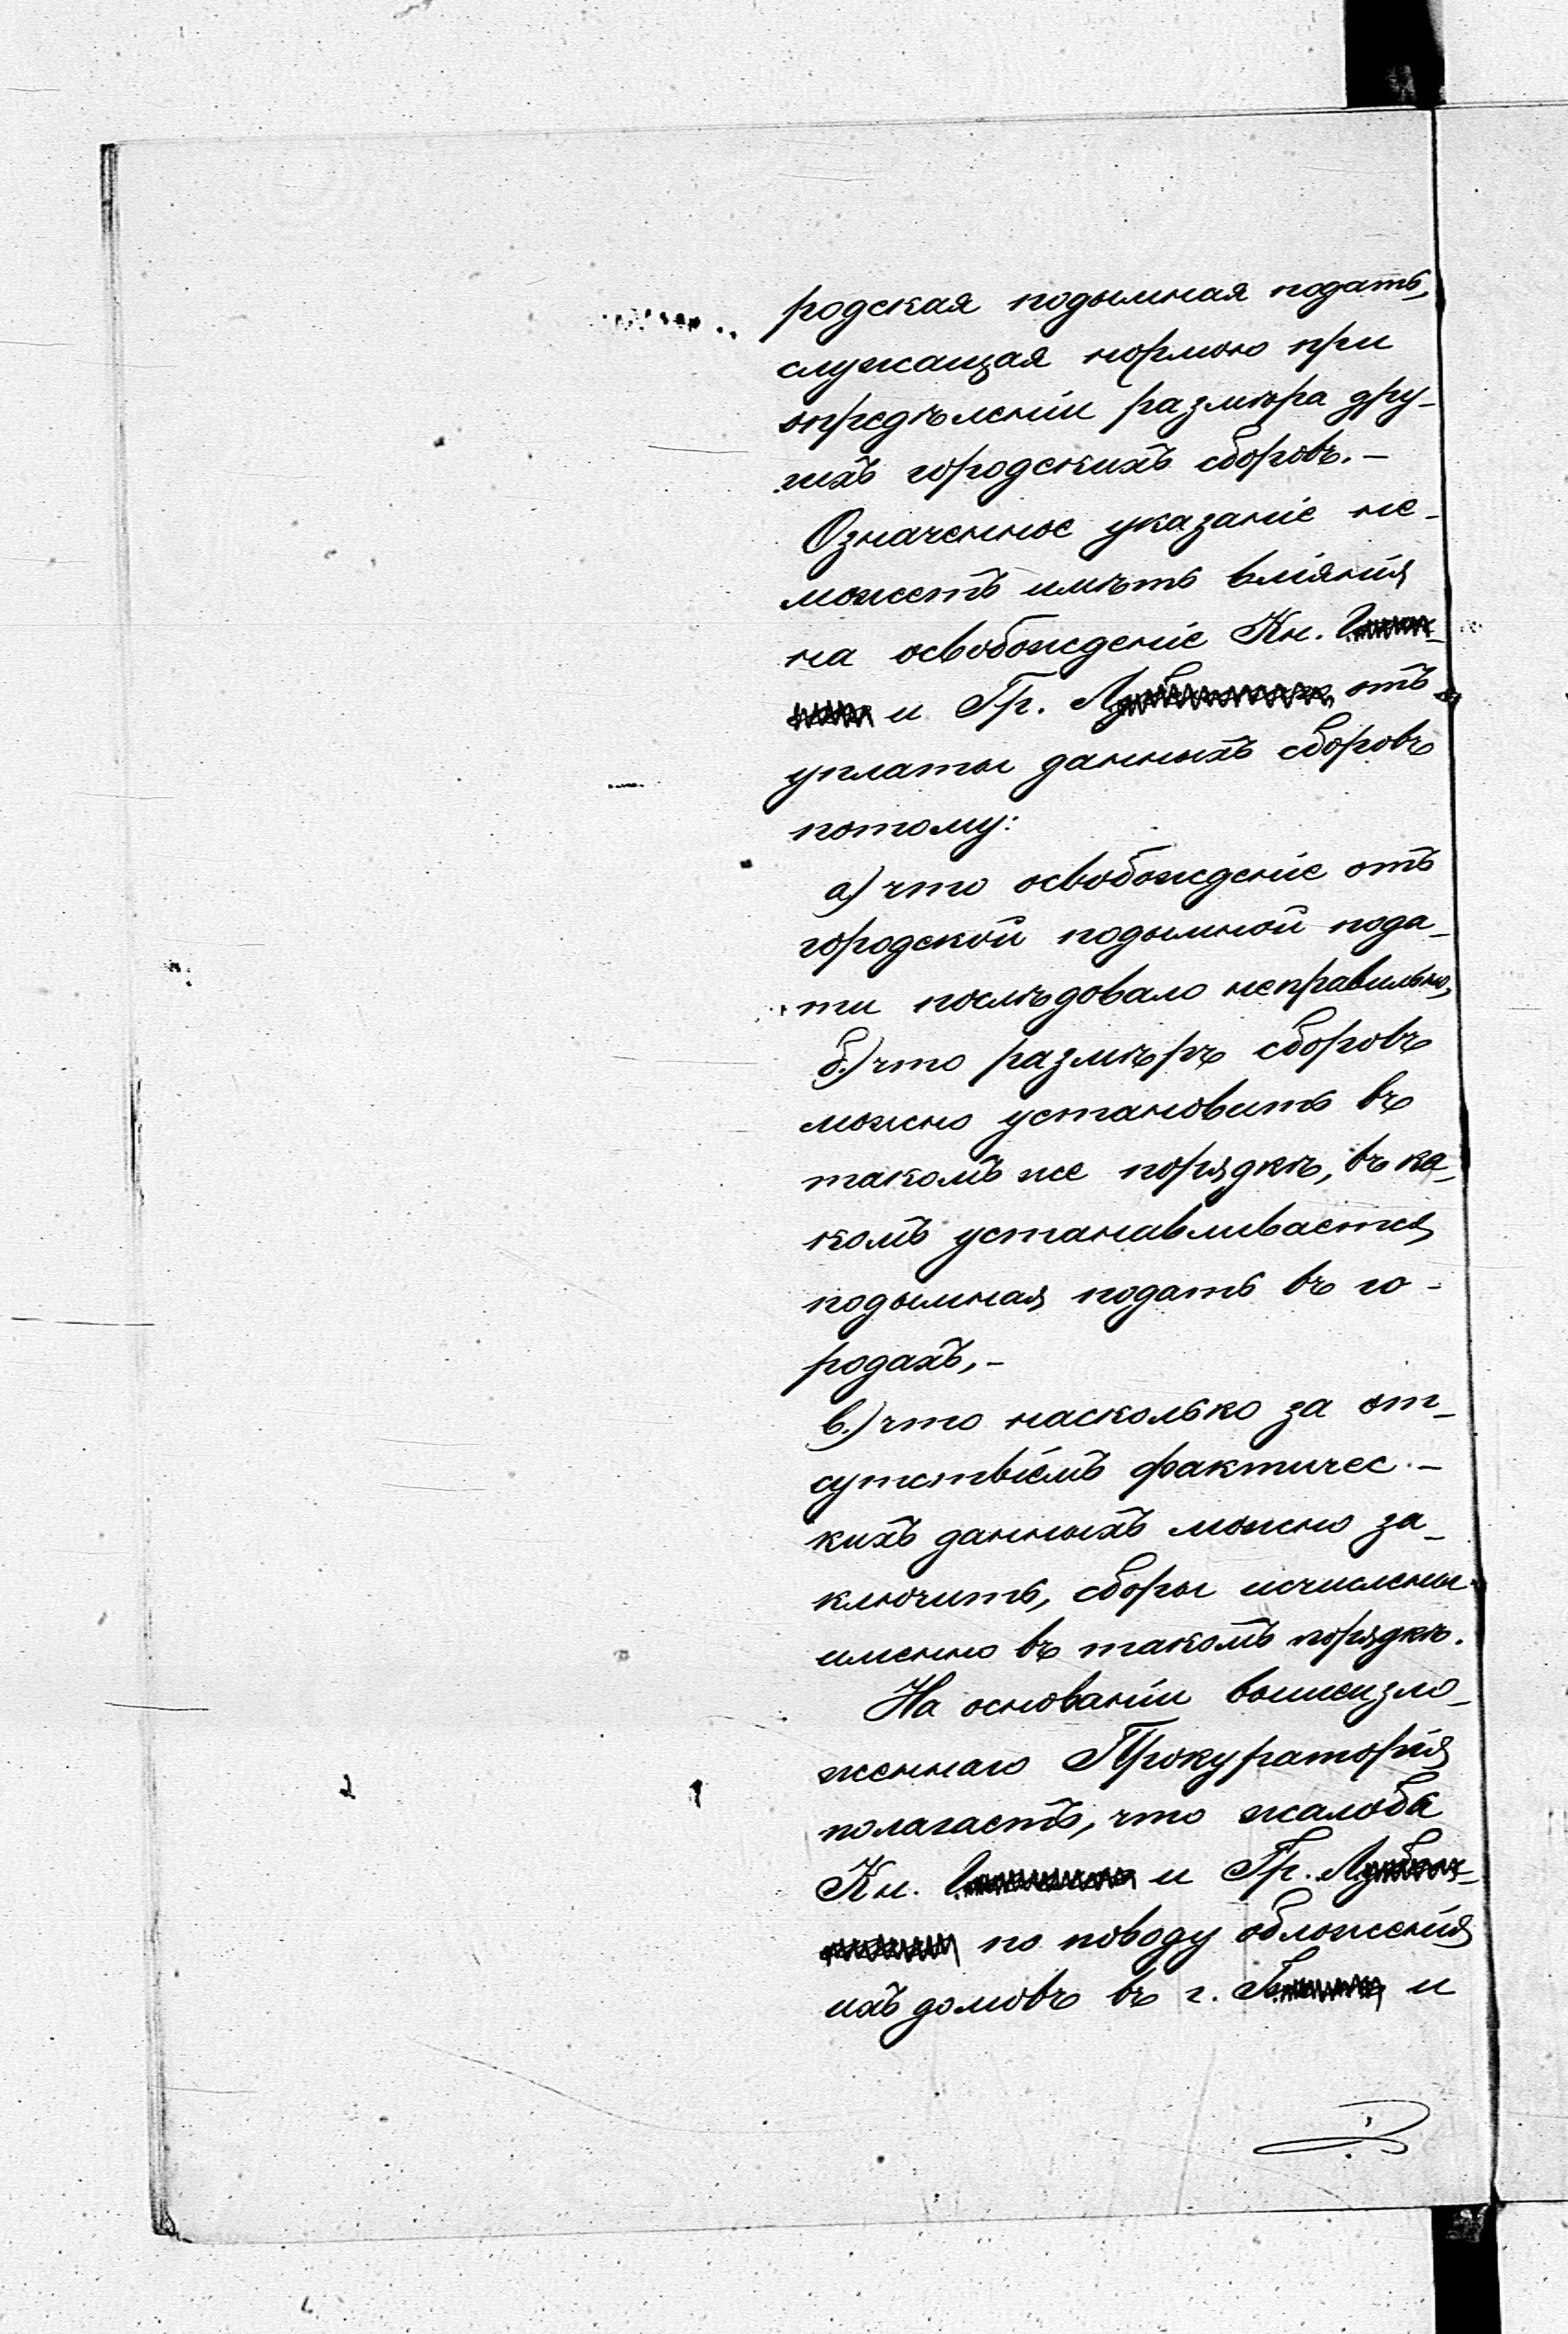 родская подымная подать,
служащая нормою при
опредѣленіи размѣра дру-
гихъ городскихъ сборовъ.-
Означенное указаніе не-
можетъ имѣть вліянія
на освобожденіе Кн.
и Гр. отъ
уплаты данныхъ сборовъ
потому:
а) что освобожденіе отъ
городской подымной пода-
ти послѣдовало неправильно,
б.) что размѣръ сборовъ
можно установить въ
такомъ же порядкѣ, въ ка-
комъ устанавливается
подымная подать въ го-
родахъ,-
в.) что насколько за от-
сутствіемъ фактичес-
кихъ данныхъ можно за-
ключить, сборы исчислены
именно въ такомъ порядкѣ.
На основаніи вышеизло-
женнаго Прокураторія
полагаетъ, что жалоба
Кн. и Гр.
по поводу обложенія
ихъ домовъ въ г. и